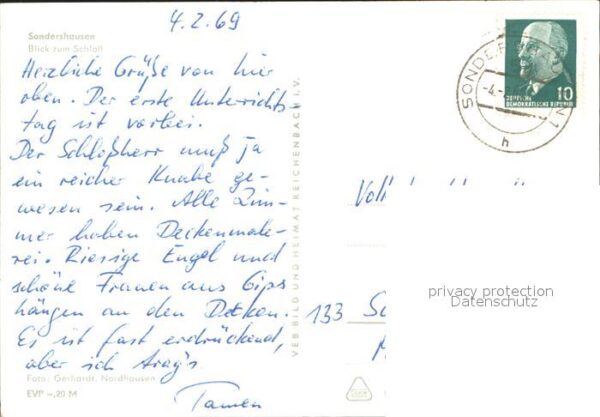 4.2.69
Sondershausen
Blick zum Schloß
Herzliche Grüße von hier
oben. Der erste Unterrichts
tag ist vorbei.
Der Schloßherr muß ja
ein reicher Knabe ge-
wesen sein. Alle Zim-
mer haben Deckenmale-
rei. Riesige Engel und
schöne Frauen aus Gips
hängen an den Decken.
Es ist fast erdrückend,
aber ich
Foto: Gerhardt, Nordhausen
EVP -,20 M
VEB BILD UND HEIMAT REICHENBACH I. V.
SONDE
-4.-
h
DEUTSCHE
DEMOKRATISCHE REPUBLIK
10
133
privacy protection
Datenschutz